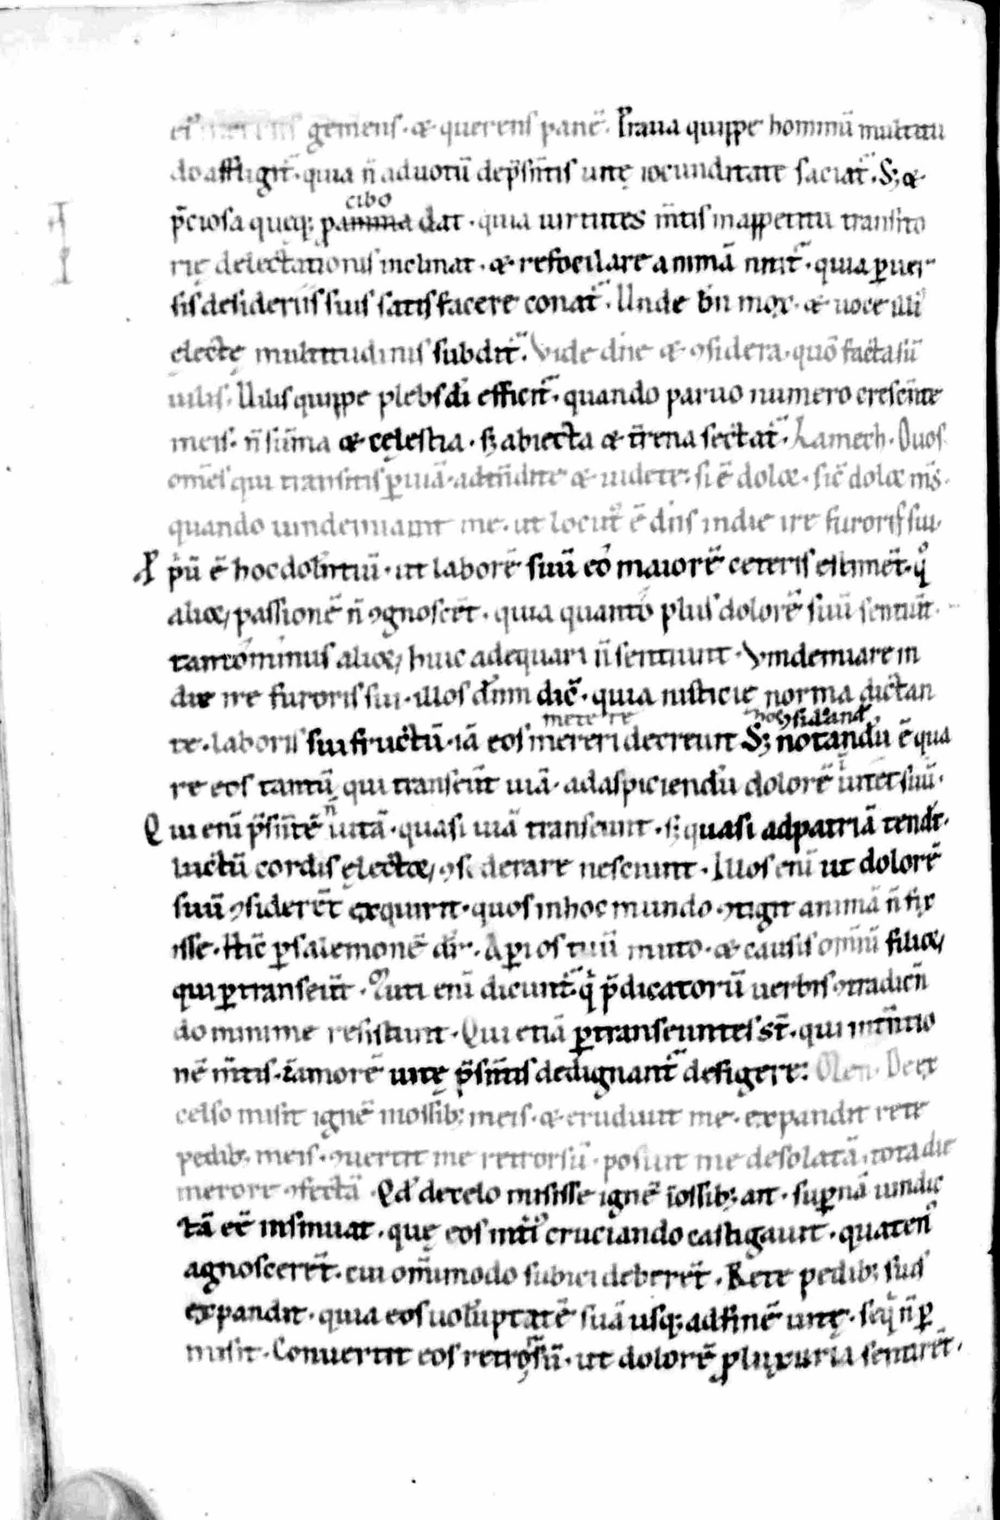 ei᷒ gemens · & querens panē · Praua quippe hominū multitu
do affligit᷑ · quia n̄ ad uotū dep̄sentis uitę iocunditate saciat᷑ · S; &
p̄ciosa queq; p̶a̶m̶m̶a̶ cibo dat · quia uirtutes m̄tis in appetitu transito
rię delectationis inclinat · & refocilare animā nitit᷑ · quia ꝑuer
sis desideriis suis satisfacere conat᷑ · Unde bn̄ mox · & uoce illi᷒
electę multitudinis subdit᷑ · Vide dn̄e & ꝯsidera · quō facta sū
uilis · Uilis quippe plebs di efficit᷑ · quando paruo numero crescente
meis · n̄ sūma & cęlestia · s; abiecta & t̄rena sectat᷑ · Lamech · O uos
om̄es qui transitis ꝑ uiā · adtendite & uidete · si ē dolor · sic̄ dolor m̄s ·
quando uindemiauit me · ut locut᷒ ē dn̄s in die ire furoris sui ·
Ꝓpū ē hoc dolentiū · ut laborē suū eo maiorē ceteris estimēt · q̊
alioꝝ passionē n̄ ꝯgnoscēt · quia quanto plus dolorē suū sentiūt ·
tanto minus alioꝝ huic adequari n̄ sentiunt · Vindemiare in
die ire furoris sui · illos dn̄m dic̄ · quia iusticie norma dictan
te · laboris sui fructū · iā eos mereri metere decreuit S; notandū hoc ꝯsiderand ē qua
re eos tantū qui transeūt uiā · ad aspiciendū dolorē inuitet suū ·
Qui enī p̄sentē uitā · quasi uiā transeunt · s; quasi ad patriā tendt̄ ·
luctū cordis electoꝝ ꝯsiderare nesciunt · Illos enī ut dolorē
suū ꝯsiderēt exquirit · quos in hoc mundo ꝯtigit animā n̄ fix
isse · Hic̄ ꝑ salemonē dr̄ · Aꝑi os tuū muto · & causis om̄iū filioꝝ
qui ꝑtranseūt · Muti enī dicunt᷑ · q̇ p̄dicatorū uerbis ꝯtradicēn
do minime resistunt · Qui etiā ꝑtranseuntes st̄ · qui intentio
nē m̄tis · ī amorē uitę p̄sentis dedignant᷑ defigere : Men · De ex
celso misit ignē in ossib; meis · & erudiuit me · expandit rete
pedib; meis · ꝯuertit me retrorsū · posuit me desolatā · tota die
merore ꝯfectā · Qd̄ de celo misisse ignē ī ossib; ait · suꝑnā uindic
tā eē insinuat · quę eos inti᷒ cruciando castigauit · quaten᷒
agnoscerēt · cui om̄imodo subici deberēt · Rete pedib; suis
expandit · quia eos uoluptatē suā usq; ad finē uitę · seq̇ n̄ ꝑ
misit · Conuertit eos retrorsū · ut dolorē ꝓ luxuria sentirēt ·